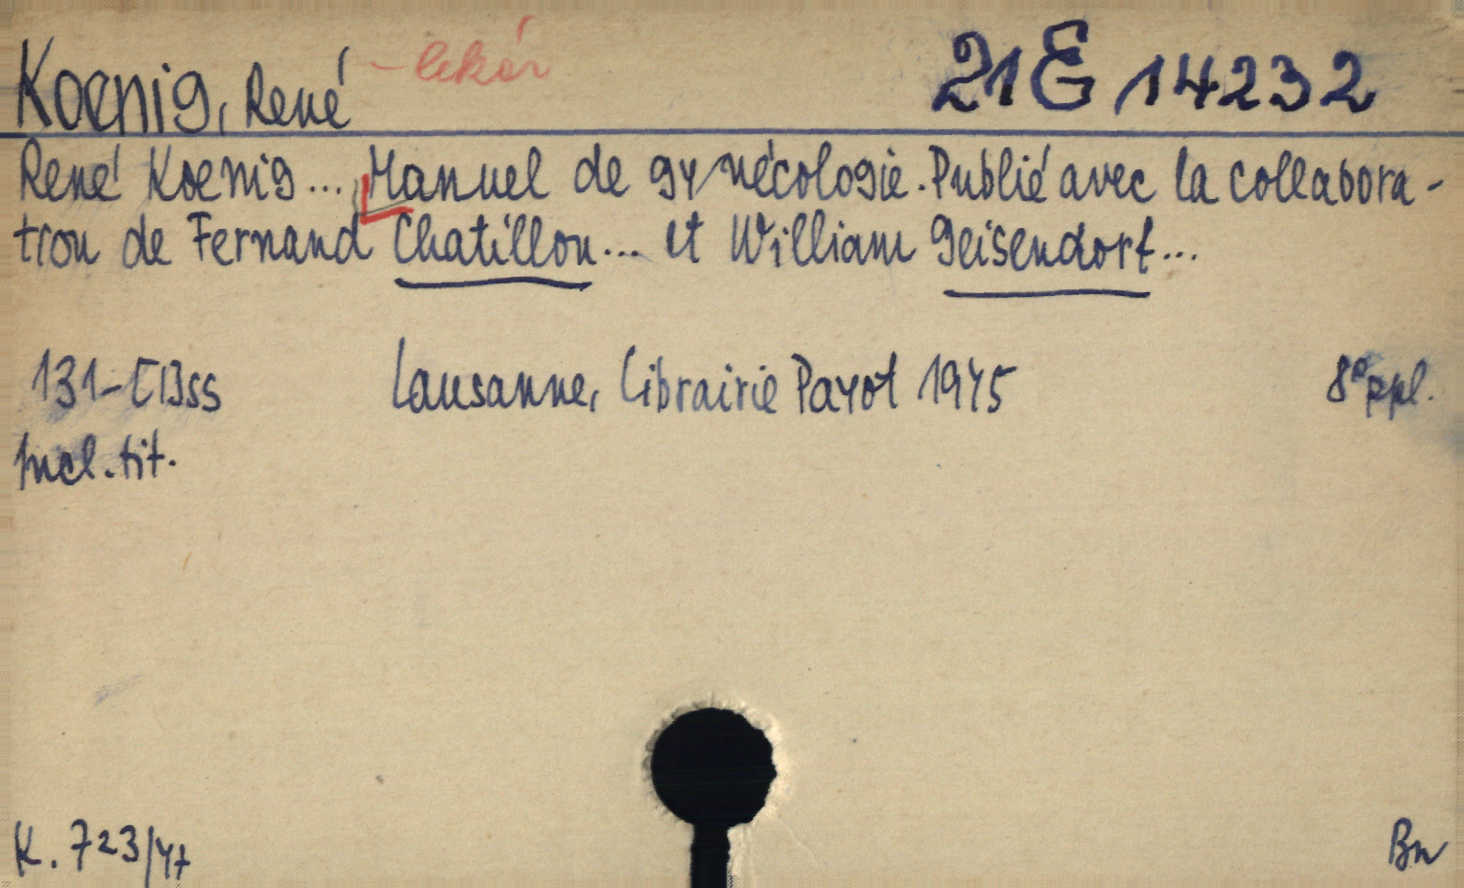 Koenig, René – lekár 21 E 14232
René Koenig... Manuel de gynécologie. Publié avec la collabora-
tion de Fernand Chatillon... et William Geisendorf...
Lausanne, Librairie Payot 1945 8° ppl.
Incl. tit.
K. 723/47 Bn